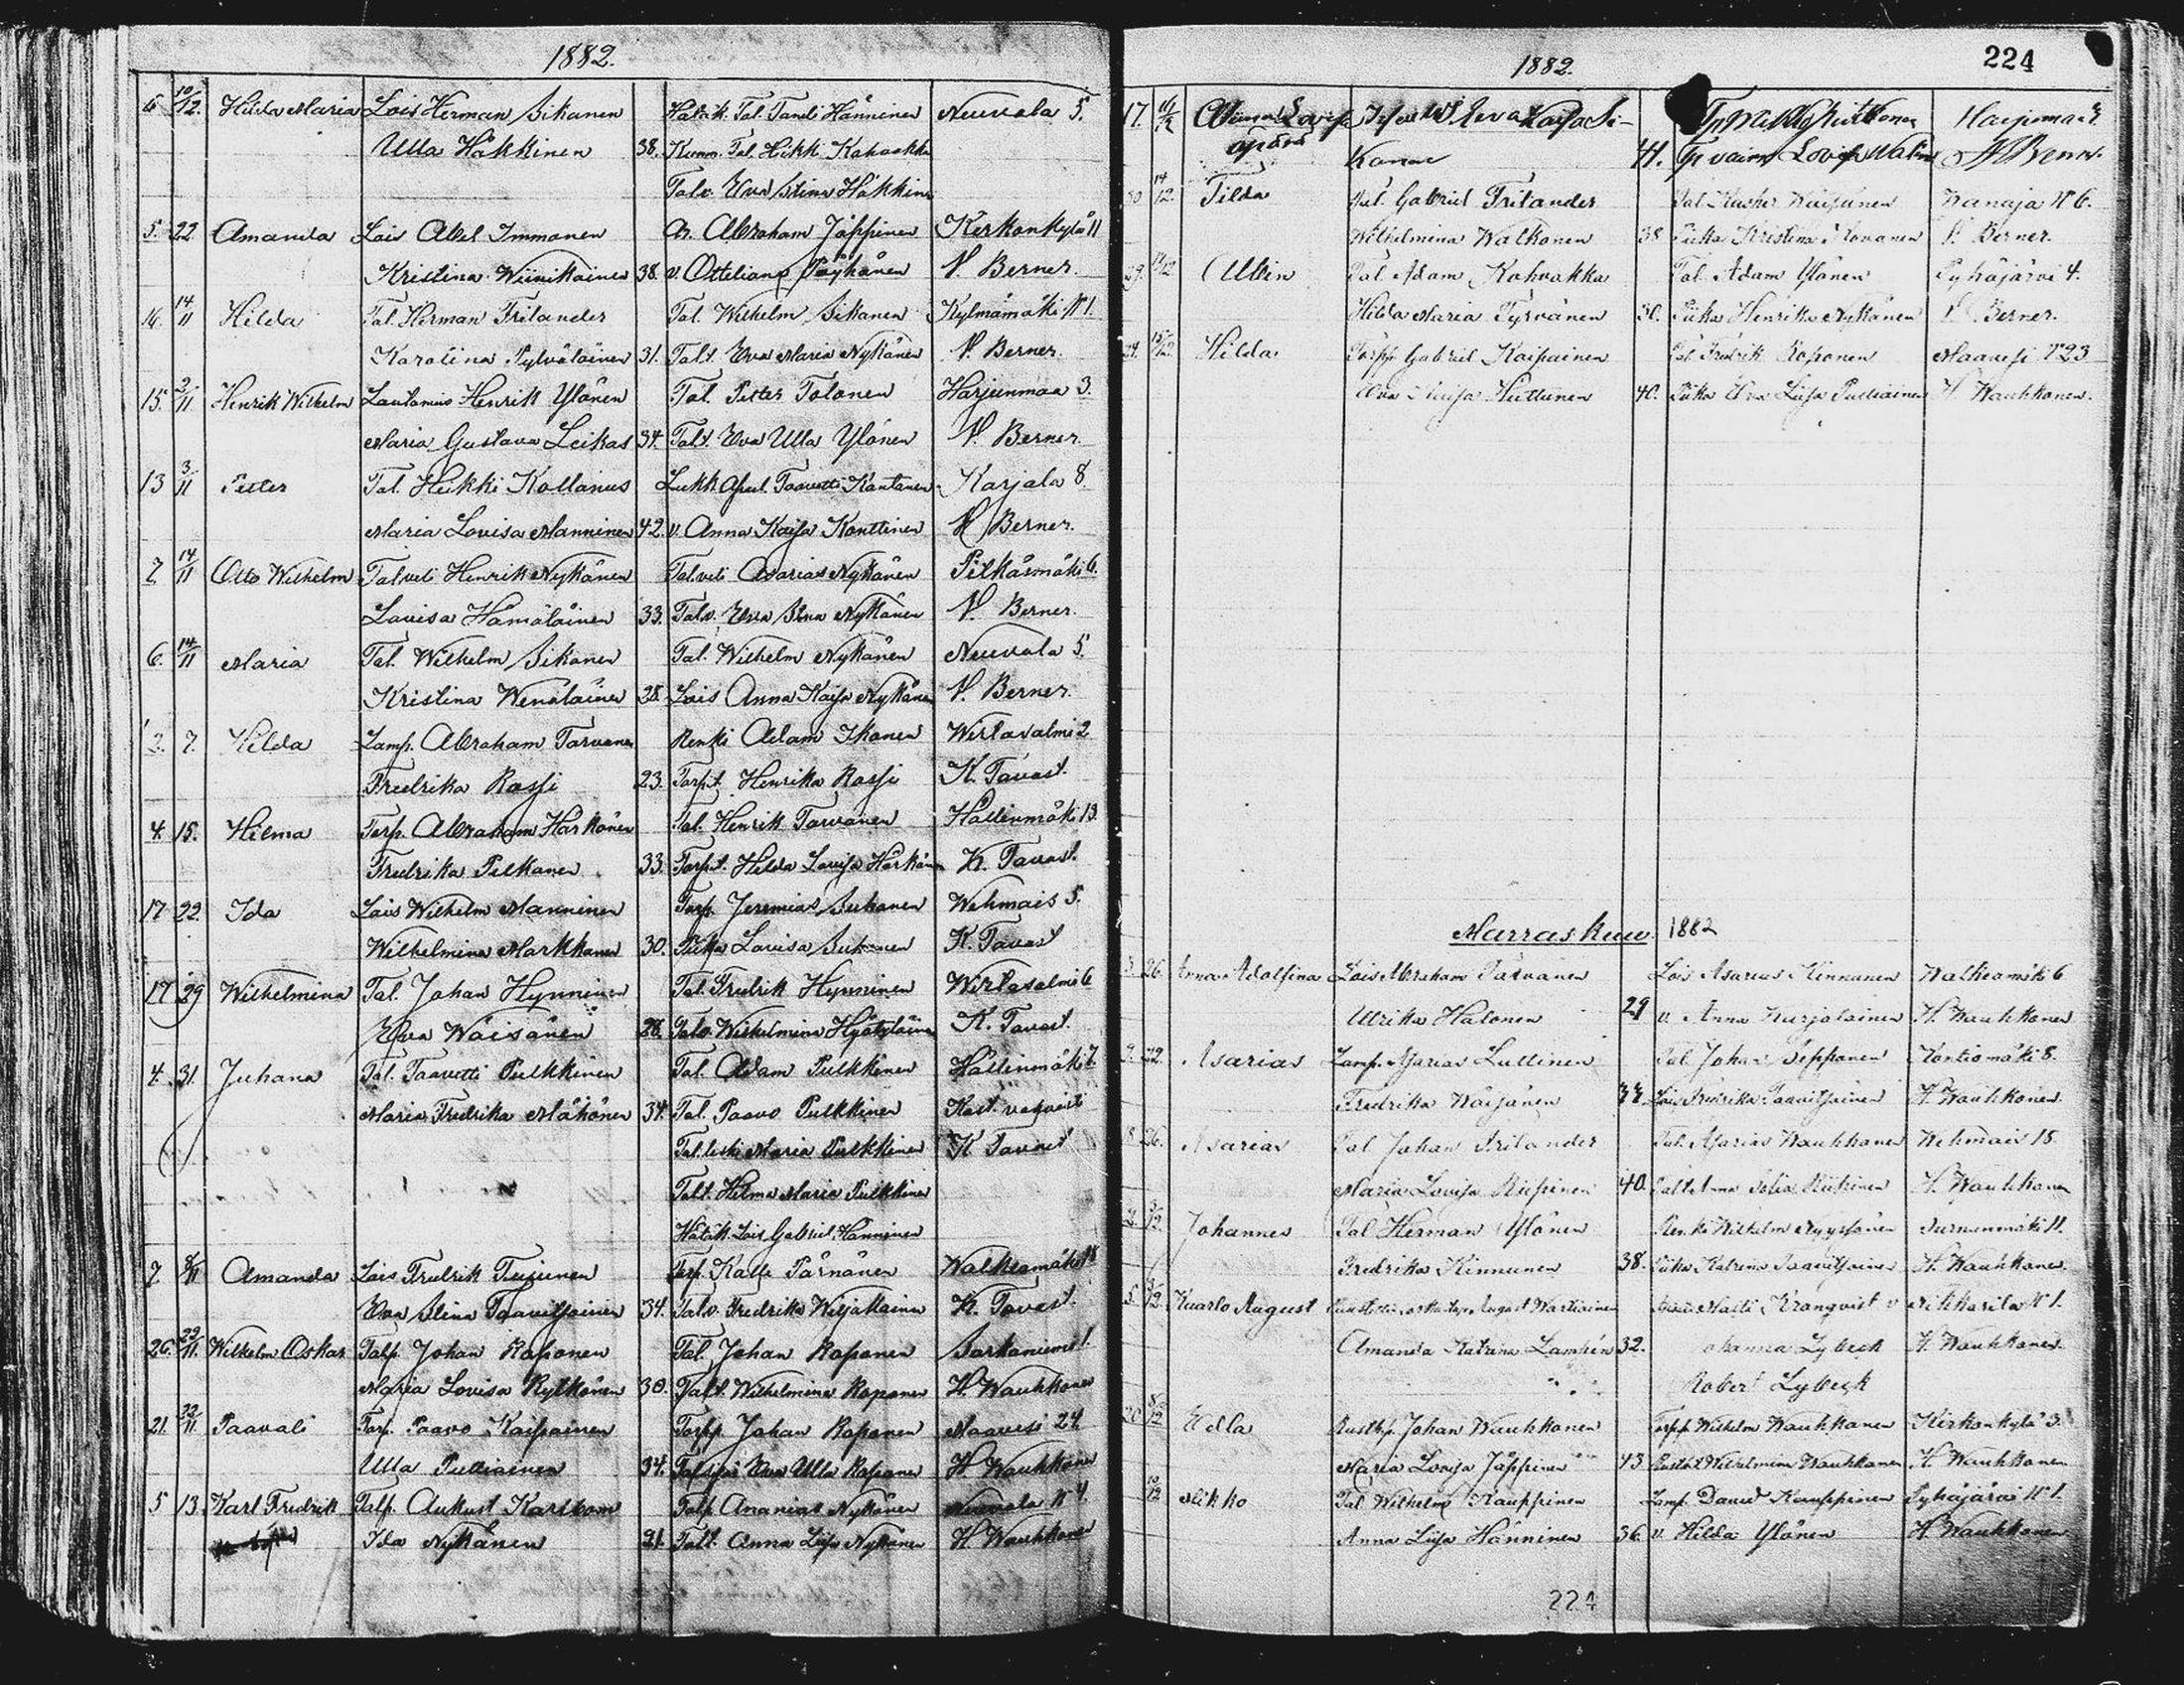 1882.
6 10/12. Hilda Maria Lois Herman Sikanen Halak. Tal. Taneli Hänninen Neuvola 5.
Ulla Häkkinen 38. Kunn. Tal. Hikk Kahvakka
Talv. Eva Stina Häkkinen
5. 22 Amanda Lois Abel Immonen Ar. Abraham Jäppinen Kerkonkylä 11
Kristina Wiinikainen 38. v. Ottiliana Pöyhönen N. Berner.
16. 14/11 Hilda Tal. Herman Frilander Tal. Wilhelm Sikanen Kylmämäki N 1.
Karolina Pylväläinen 31. Talt. Eva Maria Nykänen N. Berner.
15. 2/11 Henrik Wilhelm Lautamies Henrik Ylönen Tal. Petter Tolonen Harjunmaa 3.
Maria Gustava Leikas 34. Talt. Eva Ulla Ylönen N. Berner.
13 3/11 Petter Tal. Heikki Kollanus Lukk. Apul. Taavetti Kautanen Karjala 8.
Maria Lovisa Manninen 42. v. Anna Kaisa Konttinen N. Berner.
7 14/11 Otto Wilhelm Talveli Henrik Nykänen Talveli Asarias Nykänen Pitkäsmäki 6.
Lovisa Hämäläinen 33. Talv. Eva Stina Nykänen N. Berner.
6. 14/11 Maria Tal. Wilhelm Sikanen Tal. Wilhelm Nykänen Neuvola 5.
Kristina Wenäläinen 28. Lois Anna Kaisa Nykänen N. Berner.
3. 7. Hilda Lamp. Abraham Tarvanen Renki Adam Ikonen Wirtasalmi 2
Fredrika Rossi 23. Torp.t. Henrika Rossi K. Tavast.
4. 15. Hilma Torp. Abraham Härkönen Tal. Henrik Tarvanen Hällinmäki 13.
Fredrika Pitkänen 33. Torp.t. Hilda Lovisa Härkönen K. Tavast.
17 22. Ida Lois Wilhelm Manninen Torp. Jeremias Suhonen Wehmais 5.
Wilhelmina Markkanen 30. Piika Lovisa Suhonen K. Tavast
17 29 Wilhelmina Tal. Johan Hynninen Tal. Fredrik Hynninen Wirtasalmi 6
Eva Wäisänen 28. Talv. Wilhelmina K. Tavast.
4. 31. Juhana Tal. Taavetti Pulkkinen Tal. Adam Pulkkinen Hällinmäki 7.
Maria Fredrika Mäkönen 34. Tal. Paavo Pulkkinen
Tal. leski Maria Pulkkinen K Tavast
Talt. Hilma Maria Pulkkinen
Halak. Lois Gabriel Hänninen
7. 8/11 Amanda Lois Fredrik Torp. Kalle Pärnänen Walkeamäki 18
Eva Stina Taavitsainen 34. Talv. Fredrika Weijalainen K. Tavast.
26. 22/11. Wilhelm Oskar Talp. Johan Roponen Tal. Johan Roponen Sarkaniemi 1.
Maria Lovisa Kytkönen 30. Talt. Wilhelmina Roponen H. Wauhkonen
21. 22/11 Paavali Torp. Paavo Kaipainen Torpp. Johan Roponen Maavesi 24
Ulla Pulliainen 34. Eva Ulla Roponen H Wauhkonen
5 13. Karl Fredrik Talp. Aukust Karlbom Talp. Ananias Nykänen Neuvola N 4.
Ida Nykänen 21. Talt. Anna Liisa Nykänen H Wauhkonen
1882. 224
17. Eva Kaisa Si-
kanen 41. Lovisa
30 14/12. Tilda Tal. Gabriel Frilander Wanaja N 6.
Wilhelmina Walkonen 38 Piika Kristina N. Berner.
29. Albin Tal. Adam Kahvakka Tal. Adam Ylönen Pyhäjärvi 4.
Hilda Maria Tyrväinen 30. Piika Henrika Nykänen N. Berner.
24. 15/12. Hilda Torpp. Gabriel Kaipainen Tal. Fredrik Roponen Maavesi N 23
Eva Kaisa Huttunen 40. Piika Eva Liisa Pulliainen H. Wauhkonen.
Marraskuu 1882
3. 26. Anna Adolfina Lois Abraham Tarvanen Lois Asarias Kinnunen Walkeamäki 6
Ulrika Halonen 29 v. Anna Kurjalainen H. Wauhkonen
9. 22. Asarias Lamp. Asarias Luttinen Tal. Johan Seppänen Kontiomäki 8.
Fredrika Wäisänen 33 Lois Fredrika Taavitsainen H. Wauhkonen.
8. 26. Asarias Tal Johan Frilander Tal. Asarias Wauhkonen Wehmais 18.
Maria Lovisa Kiipinen 40. H. Wauhkonen
2. 3/12. Johannes Tal Herman Ylönen Renki Wilhelm Nyyssönen Sursunmäki 11.
Fredrika Kinnunen 38. Piika Katrina Taavitsainen H. Wauhkonen
5. 3/12. Kaarlo August August Wartiainen Matti Kranqvist v. Nikkarila N 1.
Amanda Katrina Lampén 32. Johanna Lybeck H. Wauhkonen.
Robert Lybeck
20 8/12 Edla Rusth. Johan Wauhkonen Torpp. Wilhelm Wauhkonen Kirkonkylä 3.
Maria Lovisa Jäppinen 43 Wilhelmina Wauhkonen H. Wauhkonen
10/12 Mikko Tal. Wilhelm Kauppinen Lamp. David Kauppinen Pyhäjärvi N 1.
Anna Liisa Hänninen 36. v. Hilda Ylönen H. Wauhkonen
224